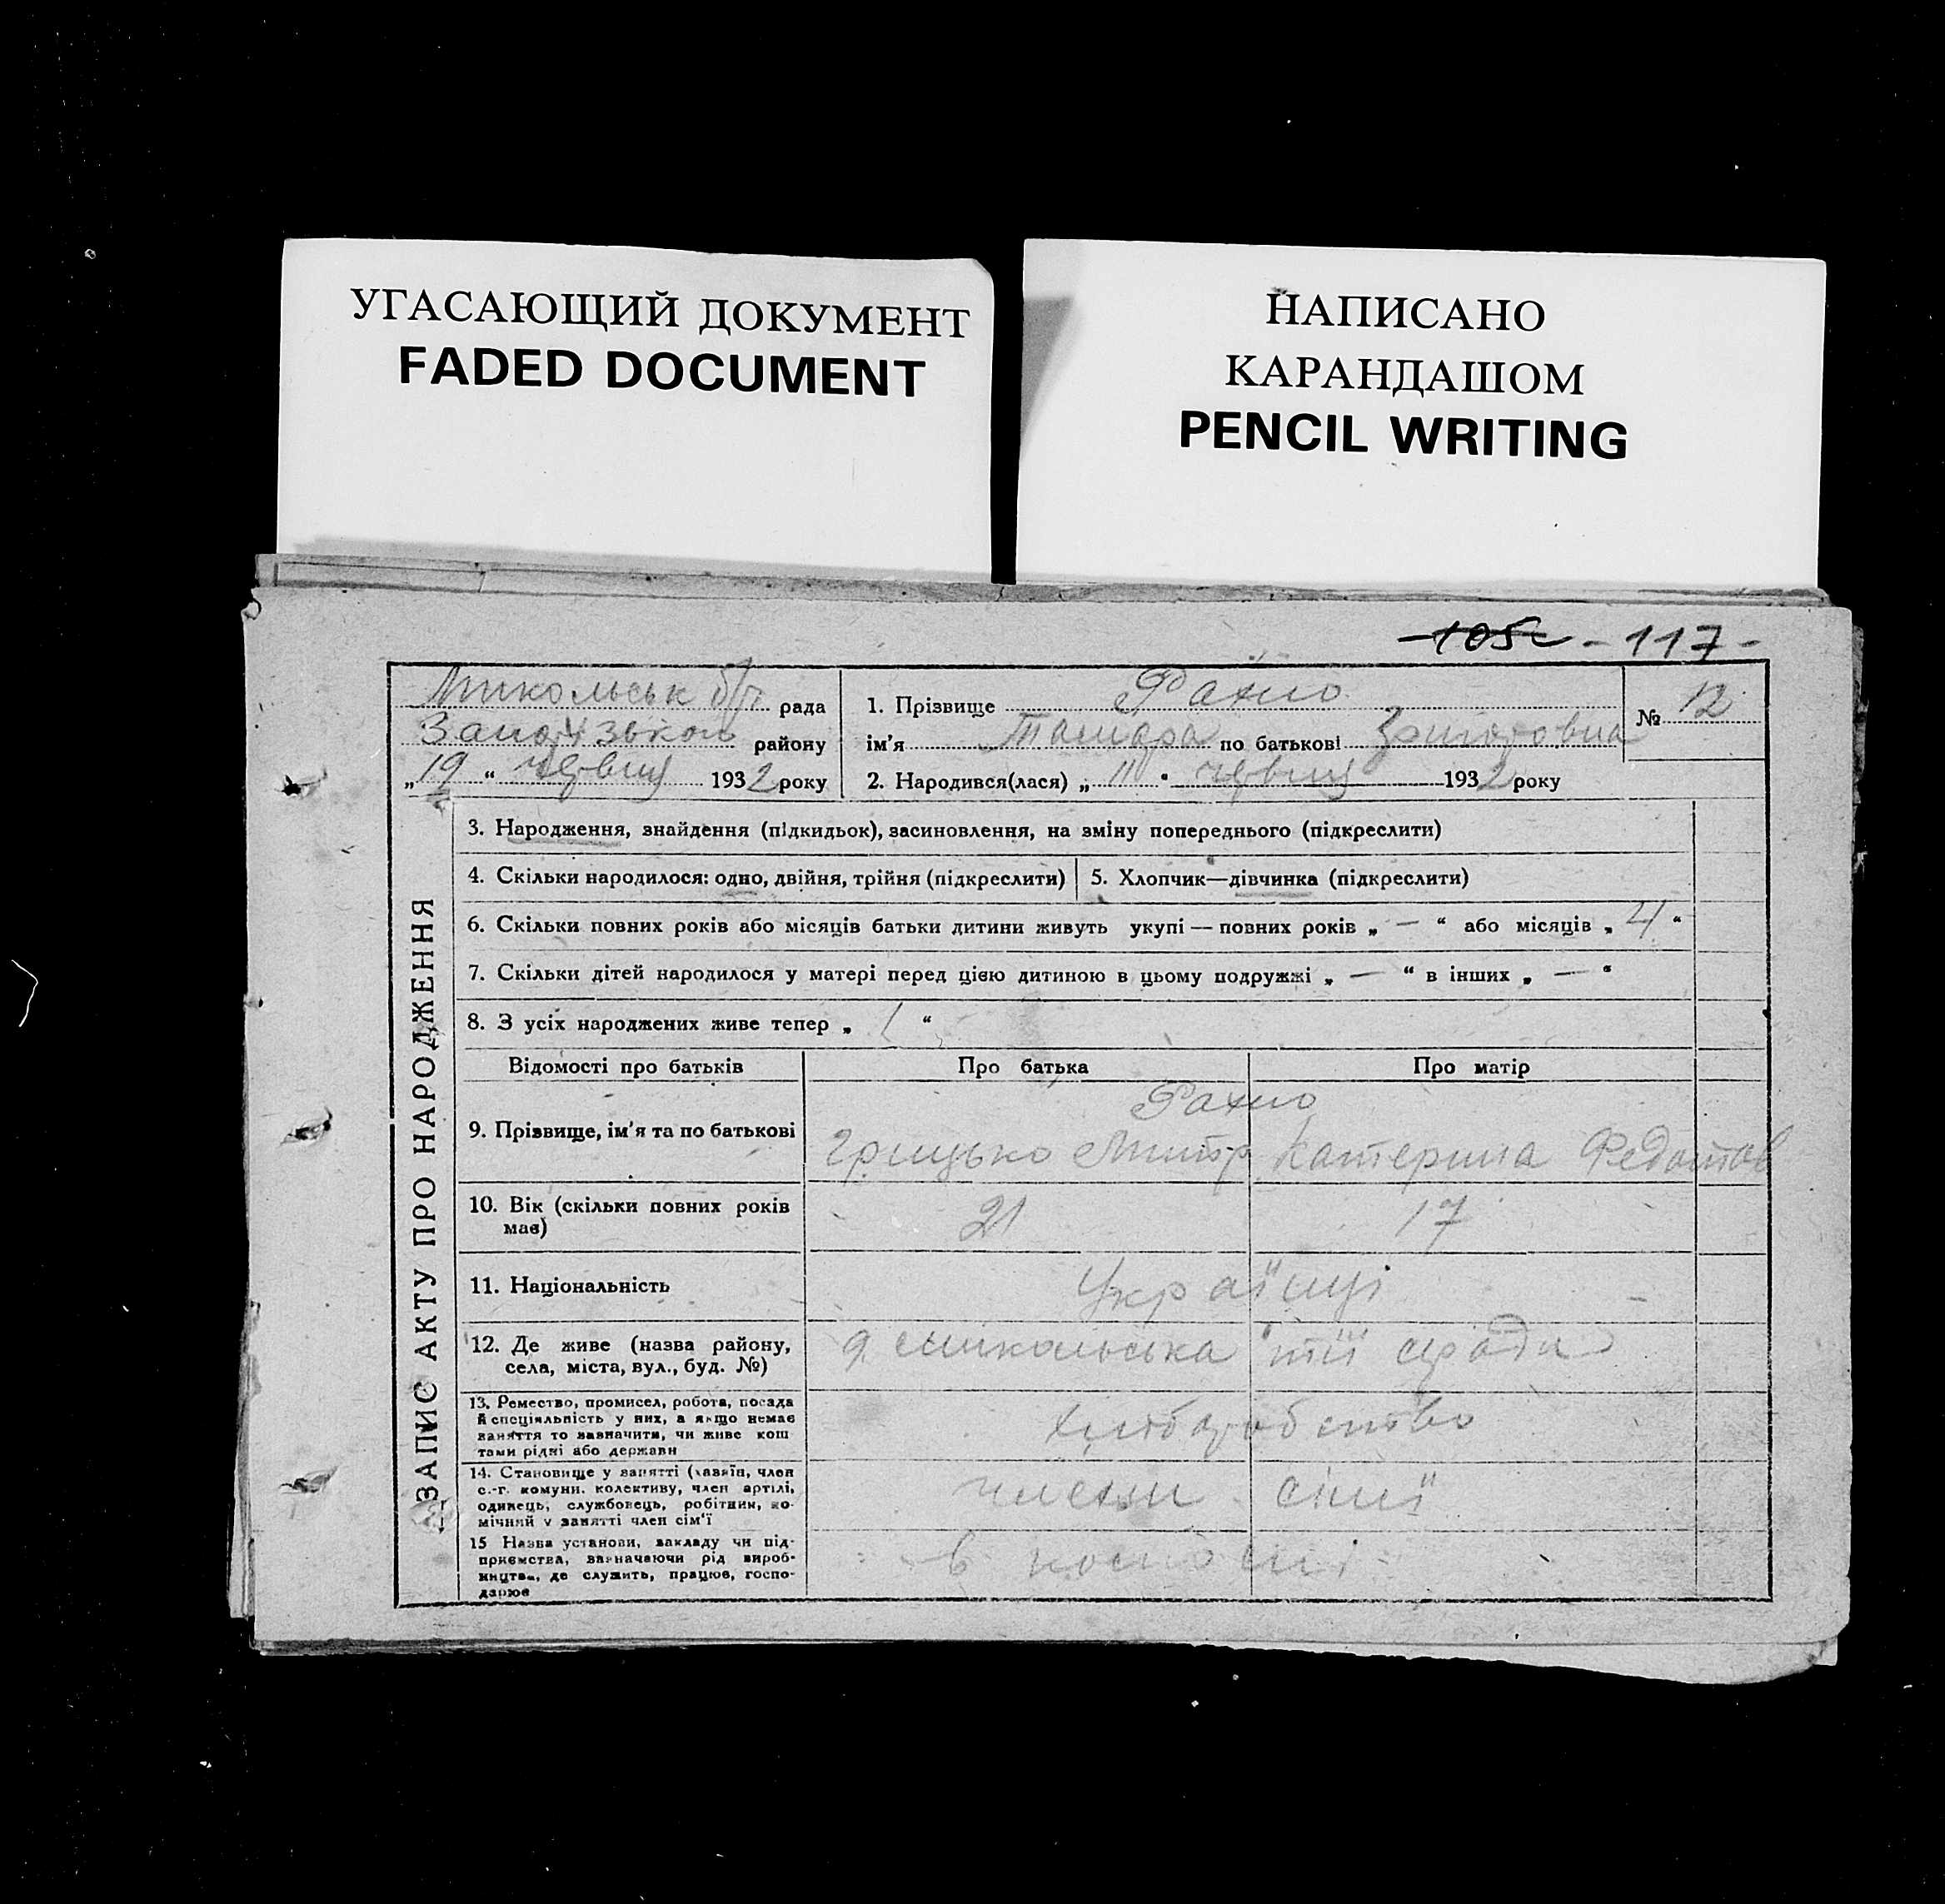 УГАСАЮЩИЙ ДОКУМЕНТ
FADED DOCUMENT
НАПИСАНО
КАРАНДАШОМ
PENCIL WRITING
105 - 117 -
Микольськ рада
району
„19“ червня 1932 року
1. Прізвище Рахно
ім'я Тамара по батькові Григоровна
№ 12
2. Народився(лася) „11“ червня 1932 року
ЗАПИС АКТУ ПРО НАРОДЖЕННЯ
3. Народження, знайдення (підкидьок), засиновлення, на зміну попереднього (підкреслити)
4. Скільки народилося: одно, двійня, трійня (підкреслити)
5. Хлопчик—дівчинка (підкреслити)
6. Скільки повних років або місяців батьки дитини живуть укупі — повних років „ — “ або місяців „ 4 “
7. Скільки дітей народилося у матері перед цією дитиною в цьому подружжі „ — “ в інших „ — “
8. З усіх народжених живе тепер „ 1 “
Відомості про батьків
Про батька
Про матір
9. Прізвище, ім'я та по батькові
Рахно
Грицько Митр
Катерина Федотов
10. Вік (скільки повних років має)
21
17
11. Національність
Українці
12. Де живе (назва району,
села, міста, вул., буд. №)
Микольська
13. Ремество, промисел, робота, посада
й спеціяльність у них, а якщо немає
заняття то зазначити, чи живе кош
тами рідні або держави
Хліборобство
14. Становище у занятті (хазяїн, член
с.-г. комуни, колективу, член артілі,
одинець, службовець, робітник, по-
мічний у занятті член сім'ї
члени сімї
15 Назва установи, закладу чи під-
приємства, зазначаючи рід вироб-
ництва, де служить, працює, госпо-
дарює
в